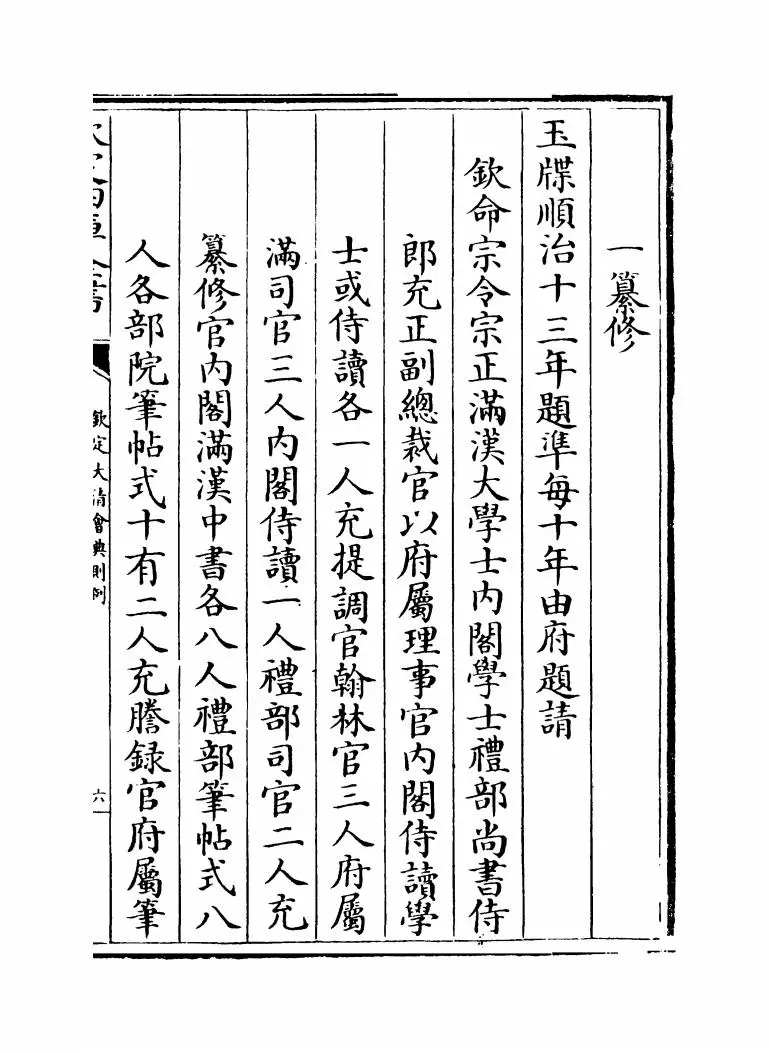 一纂修
玉牒順治十三年題準每十年由府題請
欽命宗令宗正滿漢大學士内閣學士禮部尚書侍
郎充正副總裁官以府屬理事官内閣侍讀學
士或侍讀各一人充提調官翰林官三人府屬
滿司官三人内閣侍讀一人禮部司官二人充
纂修官内閣滿漢中書各八人禮部筆帖式八
人各部院筆帖式十有二人充謄録官府屬筆
欽定四庫全書
欽定大清會典則例
六